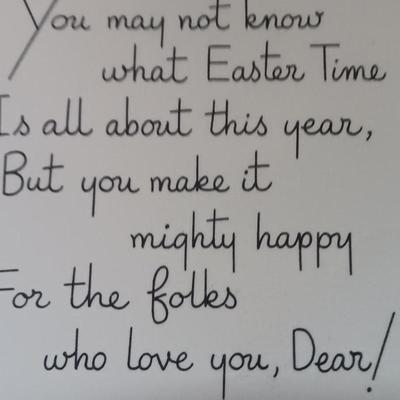 You may not know
what Easter Time
Is all about this year,
But you make it
mighty happy
For the folks
who love you, Dear!